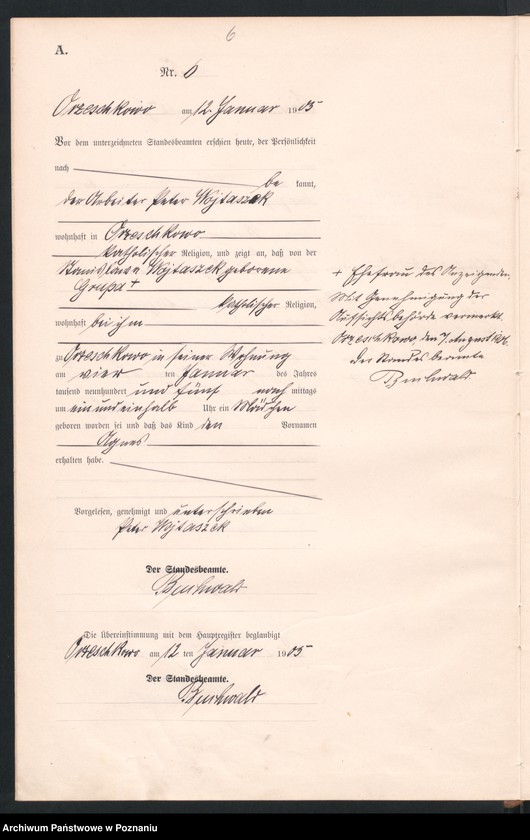 6
A.
Nr. 6
Orzeschkowo am 12 Januar 1905
Vor dem unterzeichneten Standesbeamten erschien heute, der Persönlichkeit
nach
be kannt,
der Arbeiter Peter Wojtaszek
wohnhaft in Orzeschkowo
katholischer Religion, und zeigt an, daß von der
Stanislawa Wojtaszek geborene
Grupa +
katholischer Religion,
wohnhaft bei ihm
zu Orzeschkowo in seiner Wohnung
am vier ten Januar des Jahres
tausend neunhundert und fünf nach mittags
um ein und einhalb Uhr ein Mädchen
geboren worden sei und daß das Kind den Vornamen
Agnes
erhalten habe.
Vorgelesen, genehmigt und unterschrieben
Peter Wojtaszek
Der Standesbeamte.
Die Übereinstimmung mit dem Hauptregister beglaubigt
Orzeschkowo am 12 ten Januar 1905
Der Standesbeamte.
+ Ehefrau des Anzeigenden.
Mit Genehmigung der
Aufsichtsbehörde vermerkt.
Orzeschkowo, den 7. August
Der Standesbeamte
Archiwum Państwowe w Poznaniu